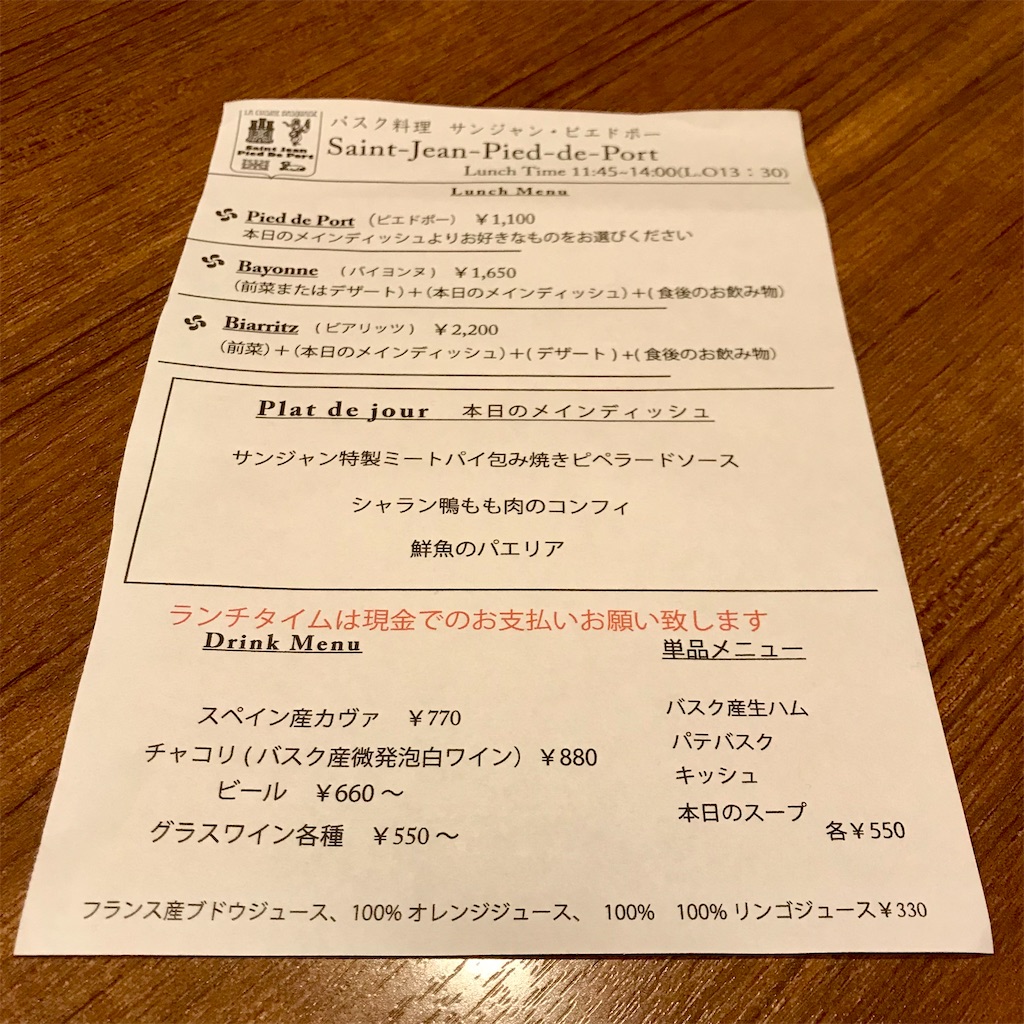 LA CUISINE BASQUAISE
Saint Jean
Pied De Port
バスク料理 サンジャン・ピエドポー
Saint-Jean-Pied-de-Port
Lunch Time 11:45~14:00(L.O13：30)
Lunch Menu
Pied de Port （ピエドポー） ￥1,100
本日のメインディッシュよりお好きなものをお選びください
Bayonne （バイヨンヌ） ￥1,650
（前菜またはデザート）＋（本日のメインディッシュ）＋( 食後のお飲み物）
Biarritz （ビアリッツ） ￥2,200
（前菜）＋（本日のメインディッシュ）＋( デザート ) +( 食後のお飲み物）
Plat de jour 本日のメインディッシュ
サンジャン特製ミートパイ包み焼きピペラードソース
シャラン鴨もも肉のコンフィ
鮮魚のパエリア
ランチタイムは現金でのお支払いお願い致します
Drink Menu
スペイン産カヴァ ￥770
チャコリ ( バスク産微発泡白ワイン） ￥880
ビール ￥660 〜
グラスワイン各種 ￥550 〜
単品メニュー
バスク産生ハム
パテバスク
キッシュ
本日のスープ
各￥550
フランス産ブドウジュース、100% オレンジジュース、 100% 100% リンゴジュース￥330